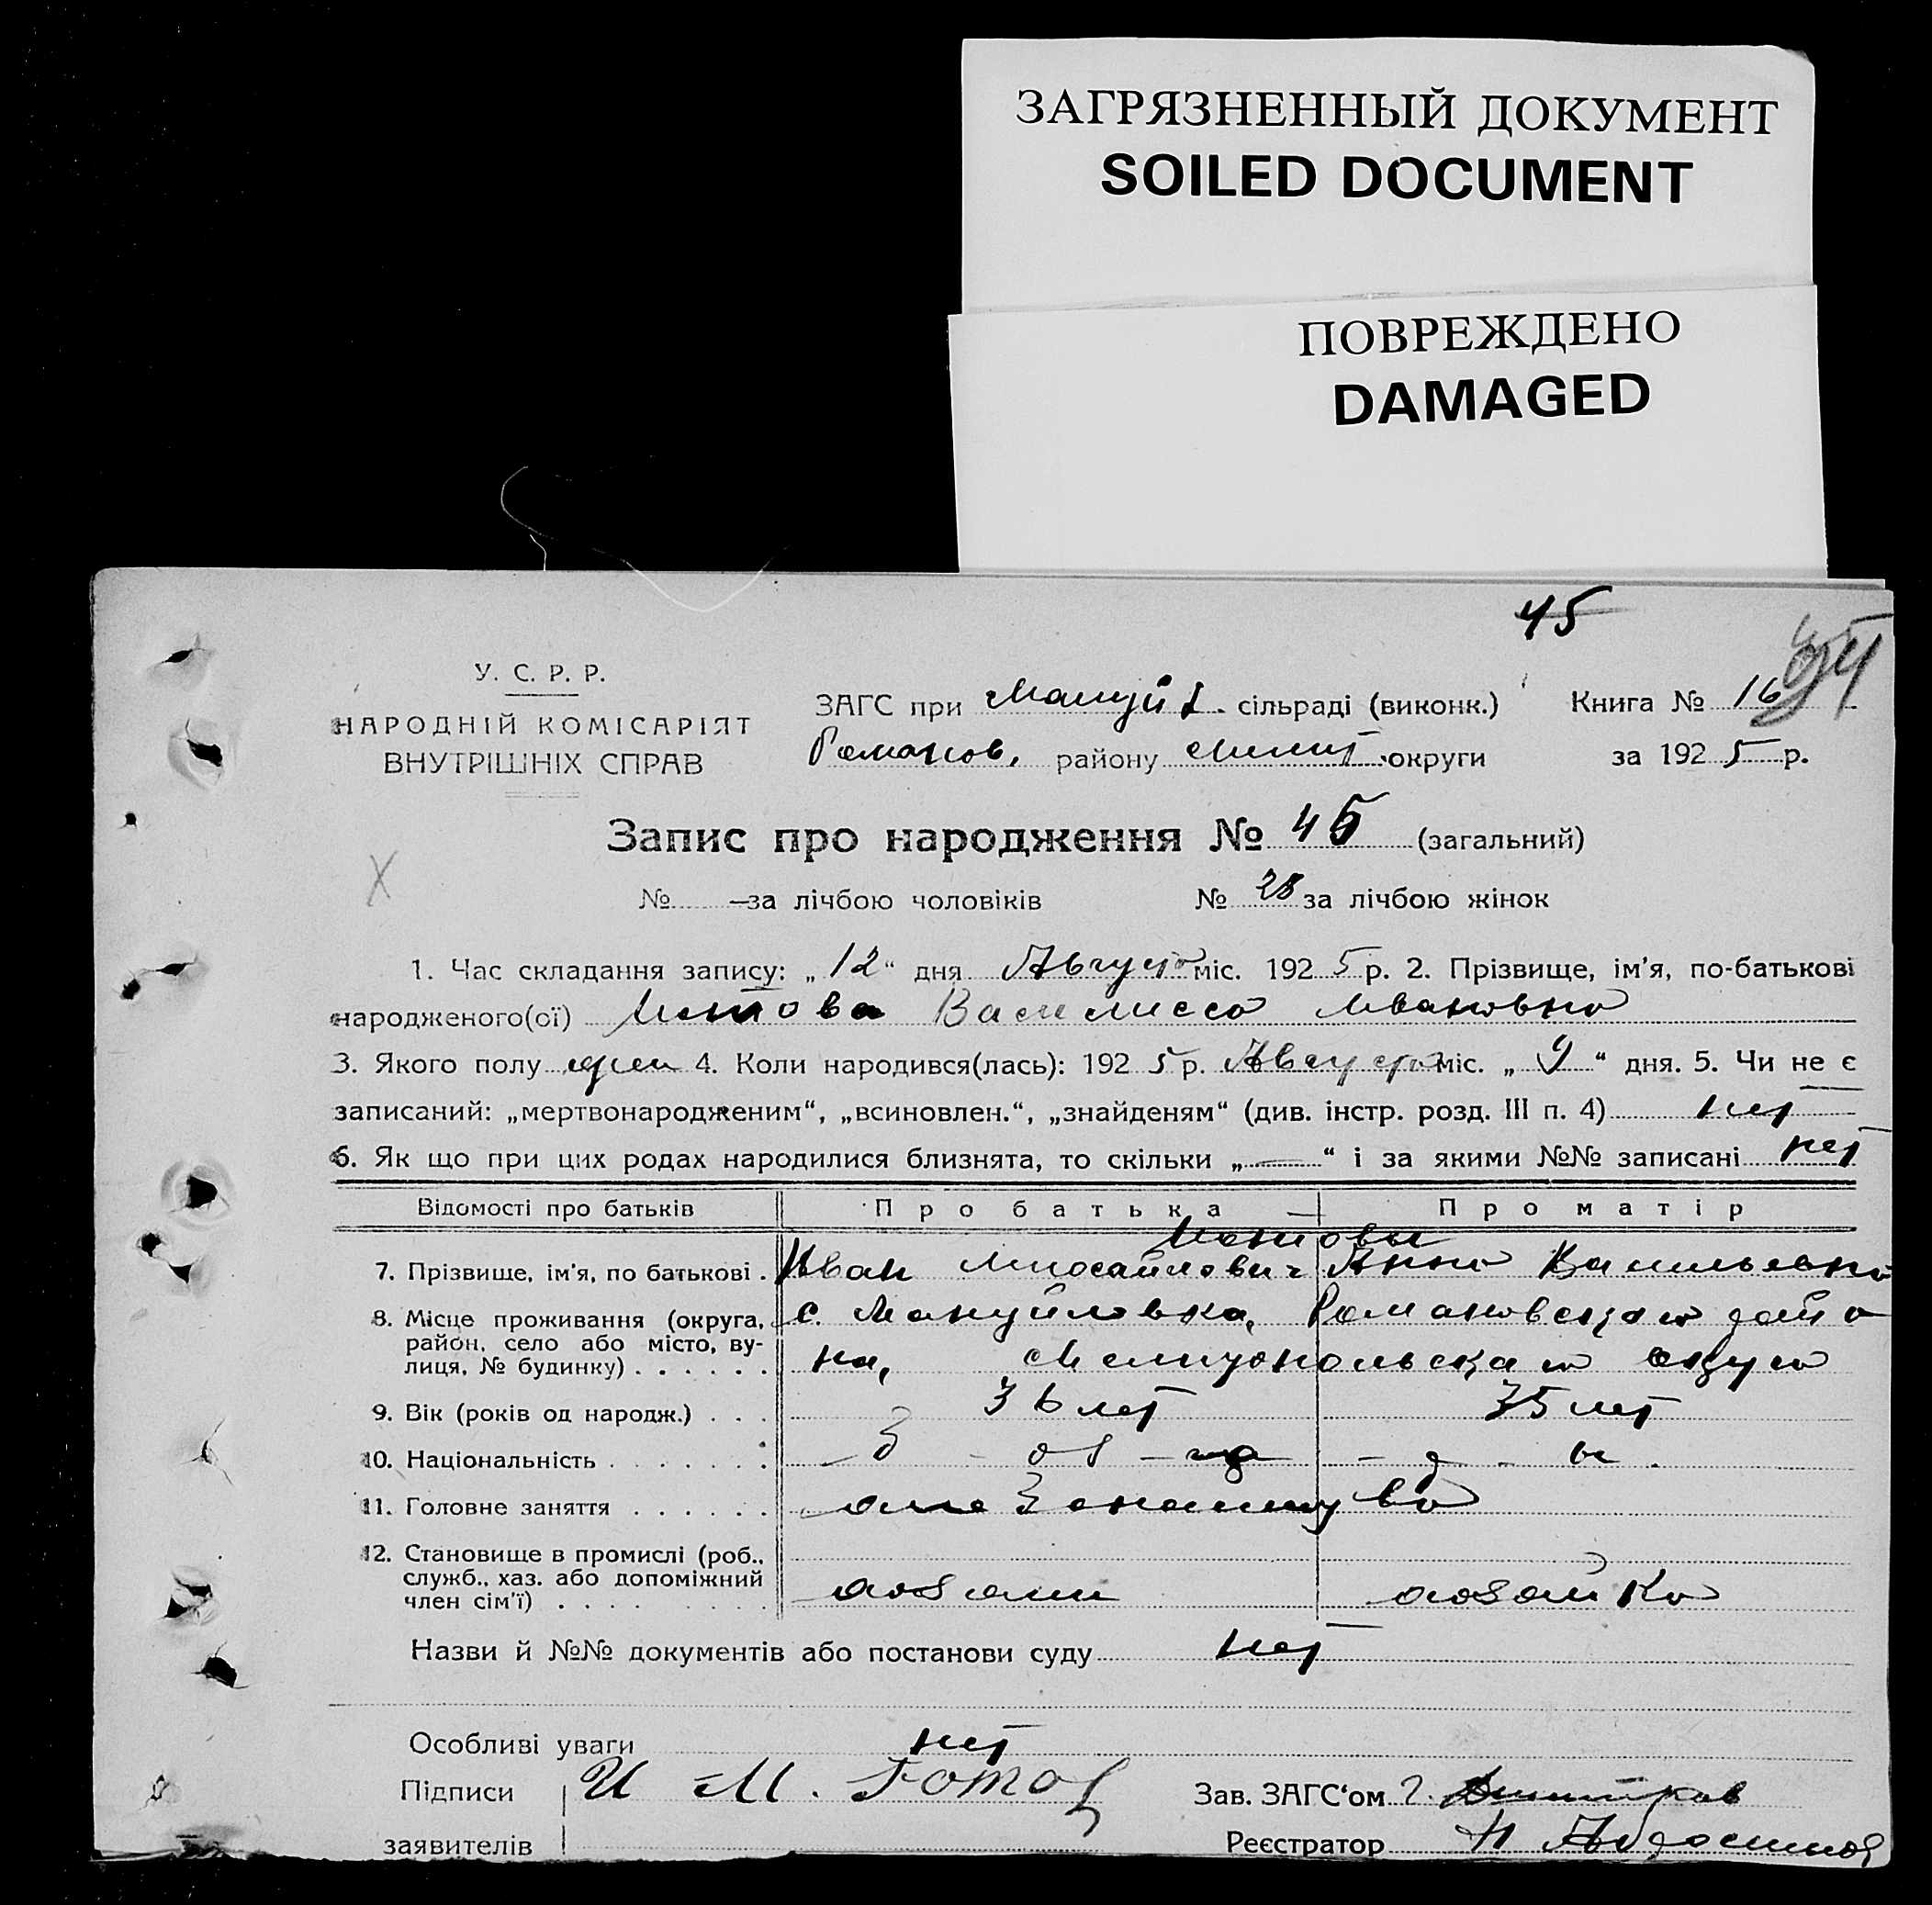 ЗАГРЯЗНЕННЫЙ ДОКУМЕНТ
SOILED DOCUMENT
ПОВРЕЖДЕНО
DAMAGED
45
У. С. Р. Р.
НАРОДНІЙ КОМІСАРІЯТ
ВНУТРІШНІХ СПРАВ
ЗАГС при Мануй сільраді (виконк.) Книга № 16
Романов. району Мелит. округи за 1925 р.
Запис про народження № 45 (загальний)
№ — за лічбою чоловіків № 28 за лічбою жінок
1. Час складання запису: „12“ дня Августа міс. 1925 р. 2. Прізвище, ім'я, по-батькові
народженого(ої) Василисса Ивановна
3. Якого полу жен 4. Коли народився(лась): 1925 р. Августа міс. „9“ дня. 5. Чи не є
записаний: „мертвонародженим“, „всиновлен.“, „знайденям“ (див. інстр. розд. III п. 4) нет
6. Як що при цих родах народилися близнята, то скільки „—“ і за якими №№ записані нет
Відомості про батьків Про батька Про матір
7. Прізвище, ім'я, по батькові . Иван Михайлович Анна Васильевна
8. Місце проживання (округа, с. Мануйловка, Романовского райо
район, село або місто, ву-
лиця, № будинку) . . . . . . на, Мелитопольского округа
9. Вік (років од народж.) . . . 36 лет 35 лет
10. Національність . . . . . . .
11. Головне заняття . . . . . .
12. Становище в промислі (роб.,
служб., хаз. або допоміжний
член сім'ї) . . . . хозяин хозяйка
Назви й №№ документів або постанови суду нет
Особливі уваги нет
Підписи И М. Зав. ЗАГС'ом
заявителів Реєстратор Н